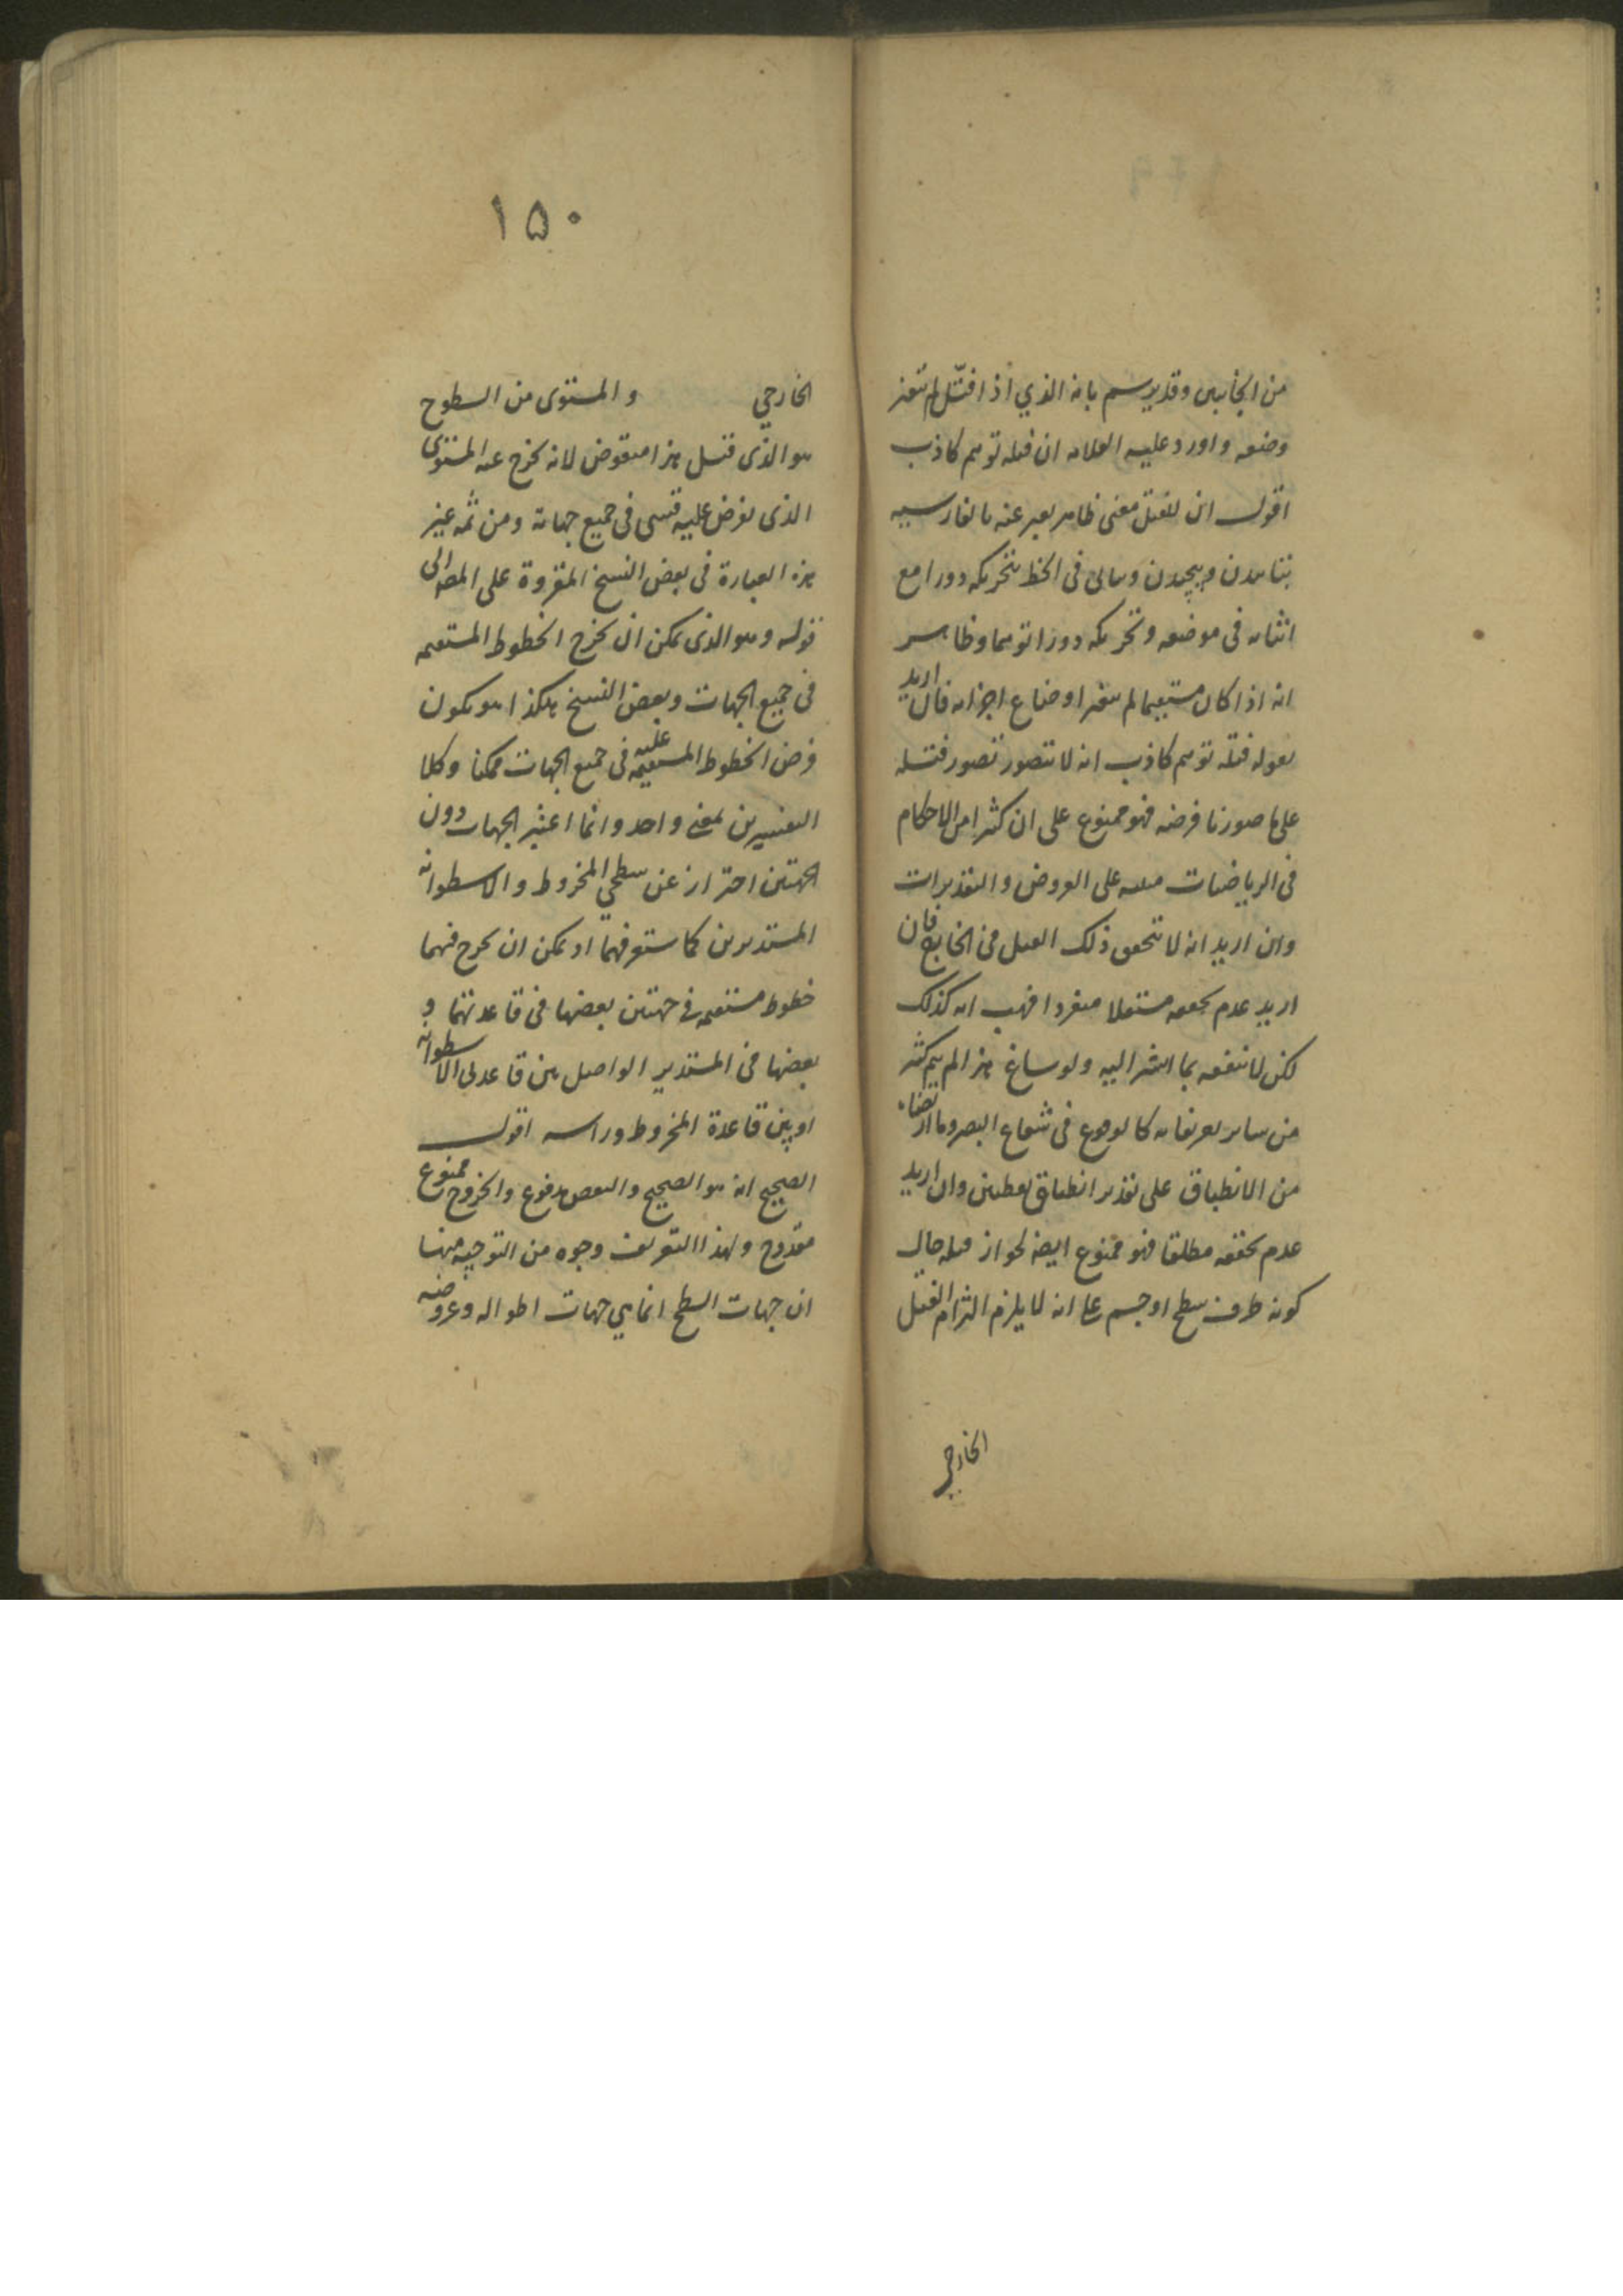 من الجانبين وقد يرسم بانه الذي اذا فتل لم يتغير
وضعه واورد عليه العلامه ان فتله توهم كاذب
اقول ان للفتل معنى ظاهر يعبر عنه بالفارسيه
بتابيدن وپيچيدن ويتاتى فى الخط بتحريكه دورا مع
اثباته فى موضعه وتحريكه دورا توهما وظاهر
انه اذا كان مستقيما لم يتغير اوضاع اجزائه فان اريد
بقوله فتله توهم كاذب انه لا يتصور تصور فتله
على ما صورنا فرضه فهو ممنوع على ان كثيرا من الاحكام
فى الرياضيات مبنيه على الفروض والتقديرات
وان اريد انه لا يتحقق ذلك الفتل فى الخارج فان
اريد عدم تحققه مستقلا منفردا فهب انه كذلك
لكن لا ينفعه بما اشير اليه ولو ساغ هذا لم يتم كثير
من ساير تعريفاته كالوقوع فى شعاع البصر وما ارتضاه
من الانطباق على تقدير انطباق نقطتين وان اريد
عدم تحققه مطلقا فهو ممنوع ايضا لجواز فتله حال
كونه طرف سطح او جسم على انه لا يلزم التزام الفتل
الخارجي
١٥٠
الخارجي والمستوى من السطوح
هو الذى قيل هذا منقوض لانه يخرج عنه المستوى
الذى يفرض عليه قسى فى جميع جهاته ومن ثمه غير
هذه العبارة فى بعض النسخ المقروة على المصـ الى
قوله وهو الذى يمكن ان يخرج الخطوط المستقيمه
فى جميع الجهات وبعض النسخ هكذا هو يكون
فرض الخطوط المستقيمه عليه فى جميع الجهات ممكنا وكلا
التفسيرين بمعنى واحد وانما اعتبر الجهات دون
الجهتين احتراز عن سطحي المخروط والاسطوانه
المستديرين كما ستعرفهما اذ يمكن ان يخرج فيهما
خطوط مستقيمه فى جهتين بعضها فى قاعدتهما و
بعضها فى المستدير الواصل بين قاعدتى الاسطوانه
او بين قاعدة المخروط وراسه اقول
الصحيح انه هو الصحيح والنقض مدفوع والخروج ممنوع
مقدوح ولهذا التعريف وجوه من التوجيه منها
ان جهات السطح انما هي جهات اطواله وعروضه